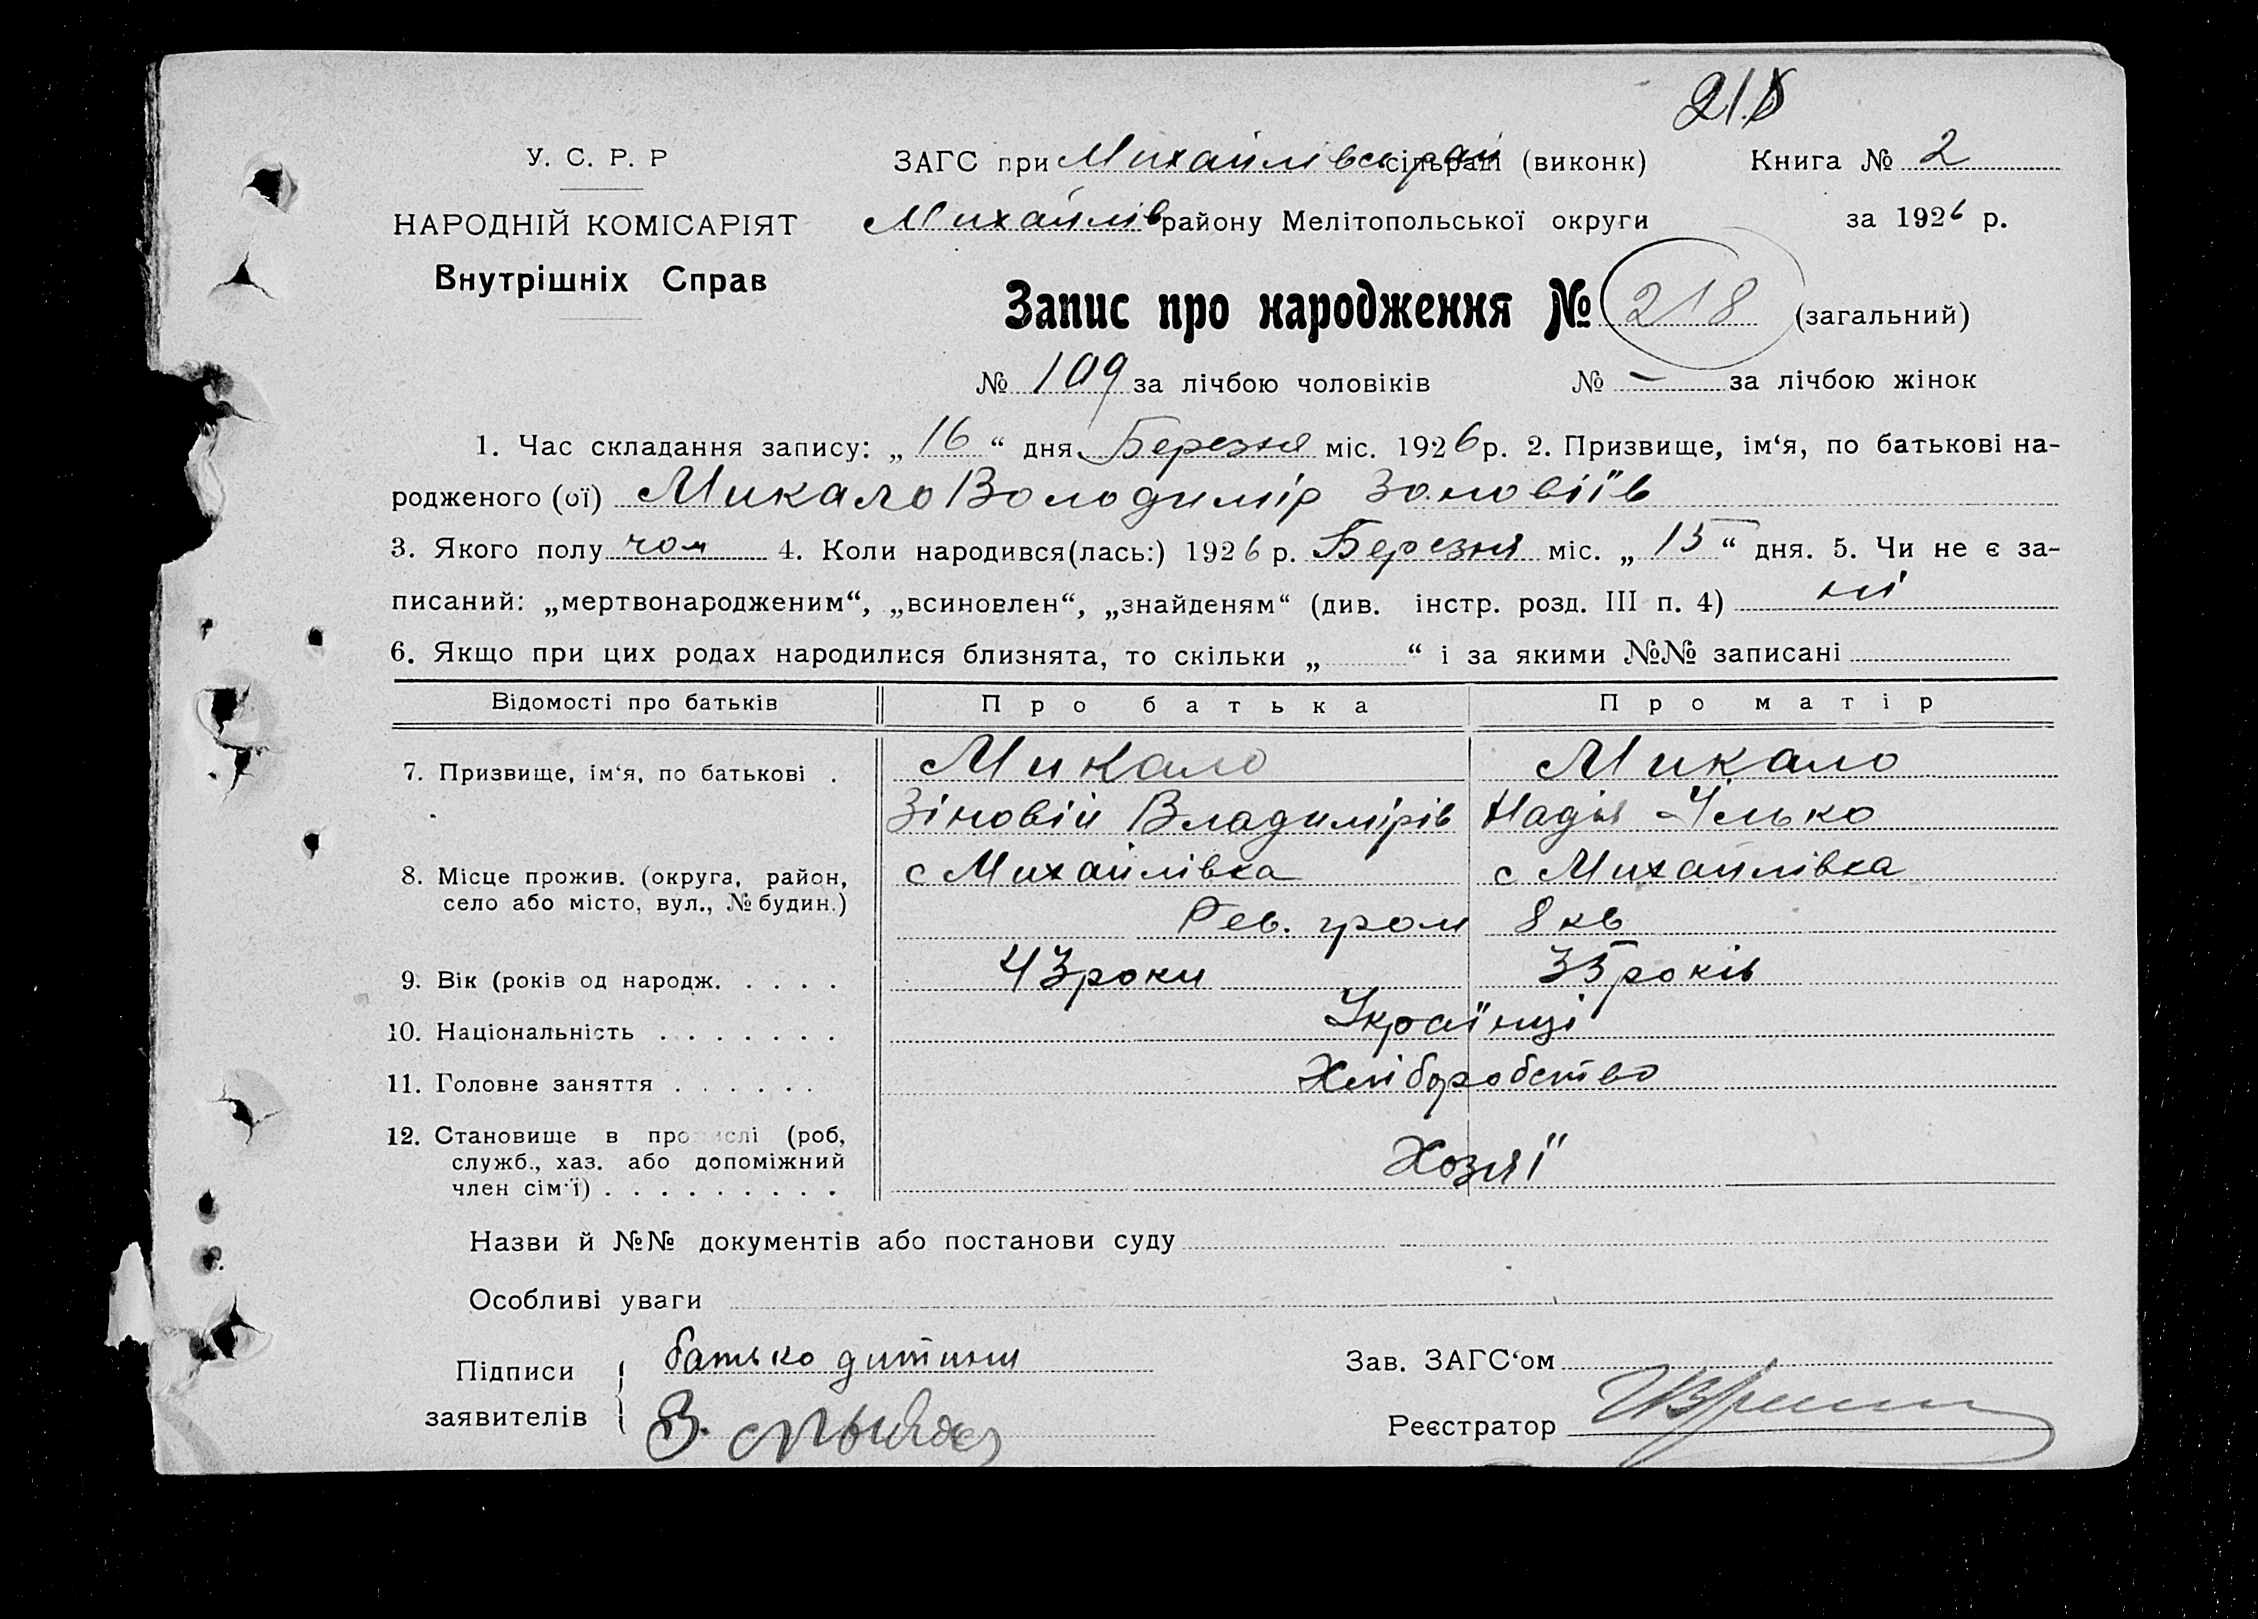 218
У. С. Р. Р
ЗАГС при Михайлівськ рай сільраді (виконк) Книга № 2
НАРОДНІЙ КОМІСАРІЯТ
Михайлів району Мелітопольської округи за 1926 р.
Внутрішніх Справ
Запис про народження № 218 (загальний)
№ 109 за лічбою чоловіків № – за лічбою жінок
1. Час складання запису: „16“ дня Березня міс. 1926 р. 2. Призвище, ім‘я, по батькові на-
родженого (ої) Микало Володимір Зоновіїв
3. Якого полу чол 4. Коли народився(лась:) 1926 р. Березня міс. „15“ дня. 5. Чи не є за-
писаний: „мертвонародженим“, „всиновлен“, „знайденям“ (див. інстр. розд. III п. 4) ні
6. Якщо при цих родах народилися близнята, то скільки „ “ і за якими №№ записані
Відомості про батьків Про батька Про матір
7. Призвище, ім‘я, по батькові . Микало Микало
Зіновій Владимірів Надія Ілько
8. Місце прожив. (округа, район, с Михайлівка с Михайлівка
село або місто, вул., № будин.)
Рев. гром 8 кв
9. Вік (років од народж. . . . . 43 роки 35 років
10. Національність . . . . . . . Українці
11. Головне заняття . . . . . . Хліборобство
12. Становище в промислі (роб,
служб., хаз. або допоміжний Хозяї
член сім‘ї) . . . . . . . . .
Назви й №№ документів або постанови суду
Особливі уваги
Підписи батько дитини Зав. ЗАГС‘ом
заявителів З. Мыкало Реєстратор